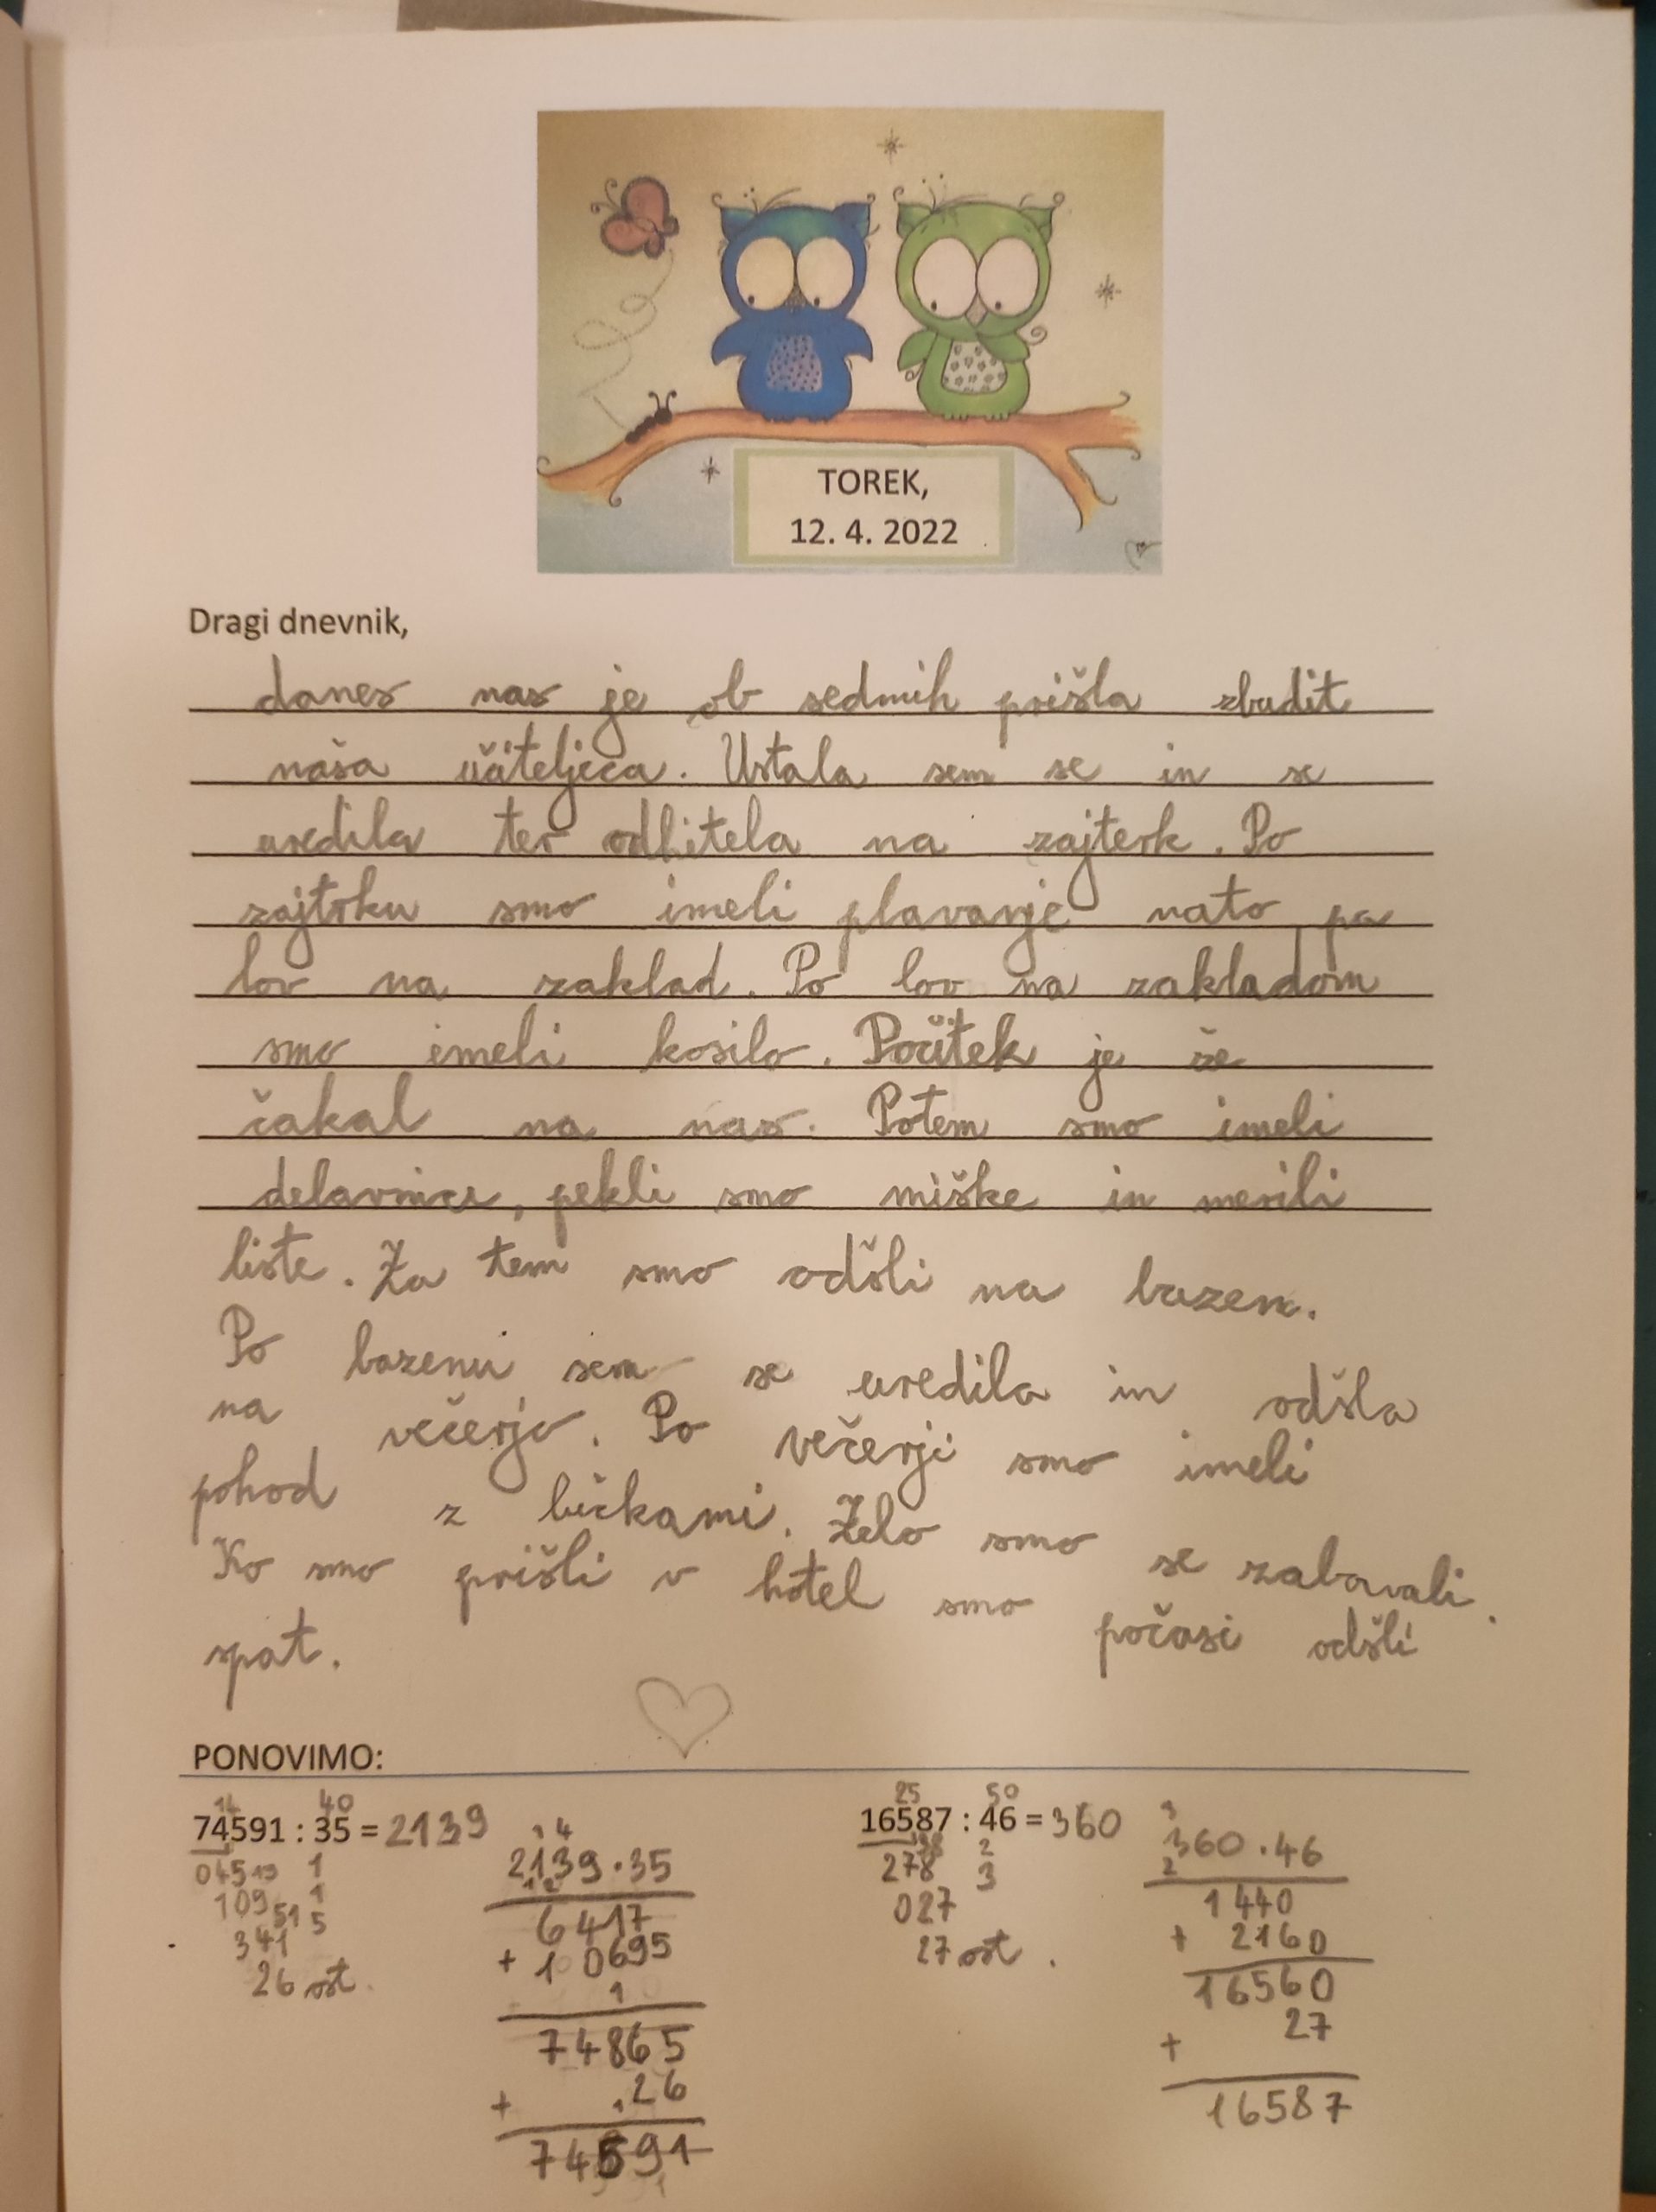 TOREK,
12. 4. 2022
Dragi dnevnik,
danes nas je ob sedmih prišla zbudit
naša učiteljica. Ustala sem se in se
uredila ter odhitela na zajterk. Po
zajtrku smo imeli plavanje nato pa
lov na zaklad. Po lov na zakladom
smo imeli kosilo. Počitek je že
čakal na nas. Potem smo imeli
delavnice, pekli smo miške in merili
liste. Za tem smo odšli na bazen.
Po bazenu sem se uredila in odšla
na večerjo. Po večerji smo imeli
pohod z lučkami. Zelo smo se zabavali.
Ko smo prišli v hotel smo počasi odšli
spat.
PONOVIMO:
14 40
74591 : 35 = 2139
04519 1
109 1
51 5
341
26 ost.
1 4
2139 · 35
1 2
6417
+ 10695
1
74865
+ 26
74591
25 50
16587 : 46 = 360
278 2
027 3
27 ost.
3
360 · 46
2
1440
+ 2160
16560
+ 27
16587